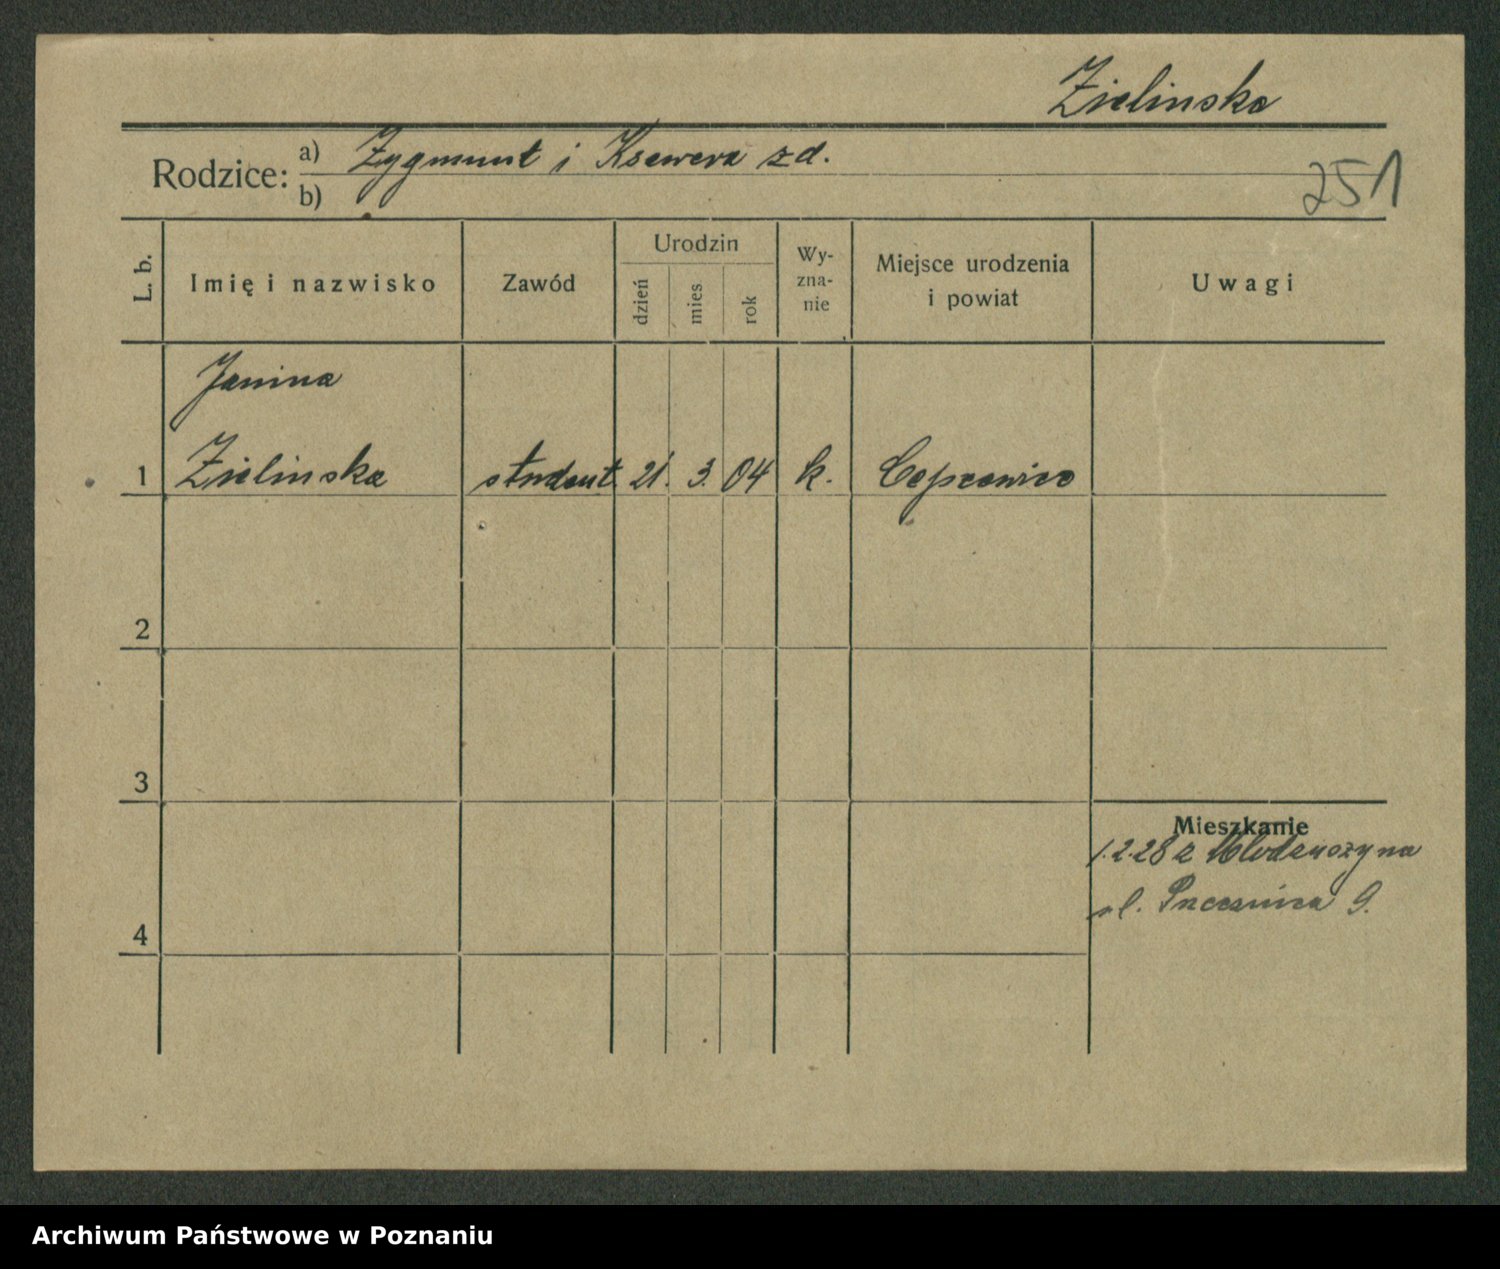 Zielinska
Rodzice: a) Zygmunt i Ksawera z d.
b)
251
L. b.
Imię i nazwisko
Zawód
Urodzin
dzień
mies
rok
Wy-
zna-
nie
Miejsce urodzenia
i powiat
Uwagi
Janina
1 Zielinska student 21. 3. 04 k.
2
3
Mieszkanie
1.2.28 z
ul. 9.
4
Archiwum Państwowe w Poznaniu